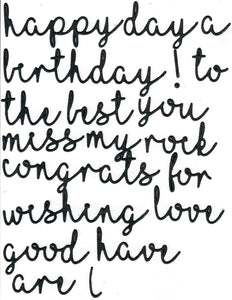 happy day a
birthday! to
the best you
miss my rock
congrats for
wishing love
good have
are (